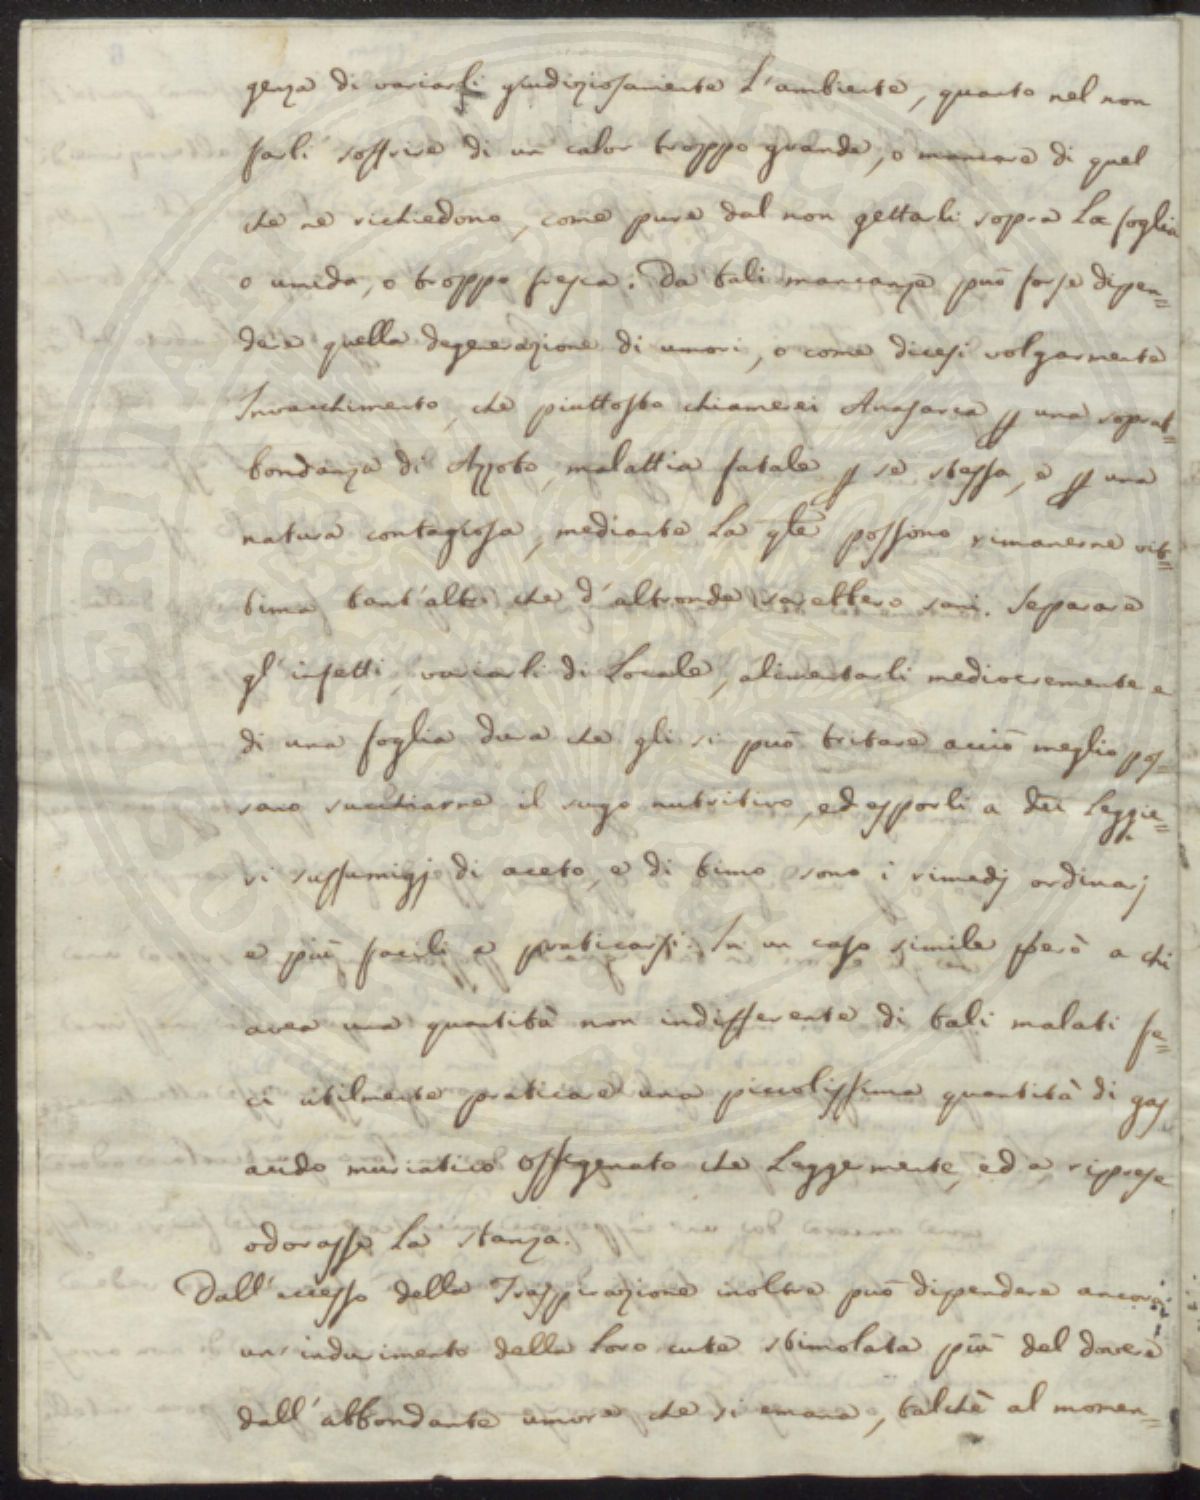 genza di variarli giudiziosamente l'ambiente, quanto nel non
farli soffrire di un calor troppo grande, o mancare di quel
che ne richiedono, come pure dal non gettarli sopra la foglia
o umida, o troppo fresca. Da tali mancanze può forse dipen=
dere quella degenerazione di umori, o come dicesi volgarmente
Invacchimento, che piuttosto chiamerei Anasarca p una soprab=
bondanza di Azzoto, malattia fatale p se stessa, e p una
natura contagiosa, mediante la qle possono rimanerne vit=
tima tant'altri che d'altronde sarebbero sani. Separare
gl'infetti, variarli di locale, alimentarli mediocremente e
di una foglia dura che gli si può tritare acciò meglio pos=
sano succhiarne il sugo nutritivo, ed esporli a dei leggie=
ri suffumigj di aceto, e di timo sono i rimedj ordinarj
e più facili a praticarsi. In un caso simile però a chi
avea una quantità non indifferente di tali malati fe=
ci utilmente praticare una piccolissima quantità di gas
acido muriatico ossigenato che leggermente, ed a riprese
odorasse la stanza.
Dall'eccesso della Traspirazione inoltre può dipendere ancora
un indurimento della loro cute stimolata più del dovere
dall'abbondante umore che si emana, talchè al momen=